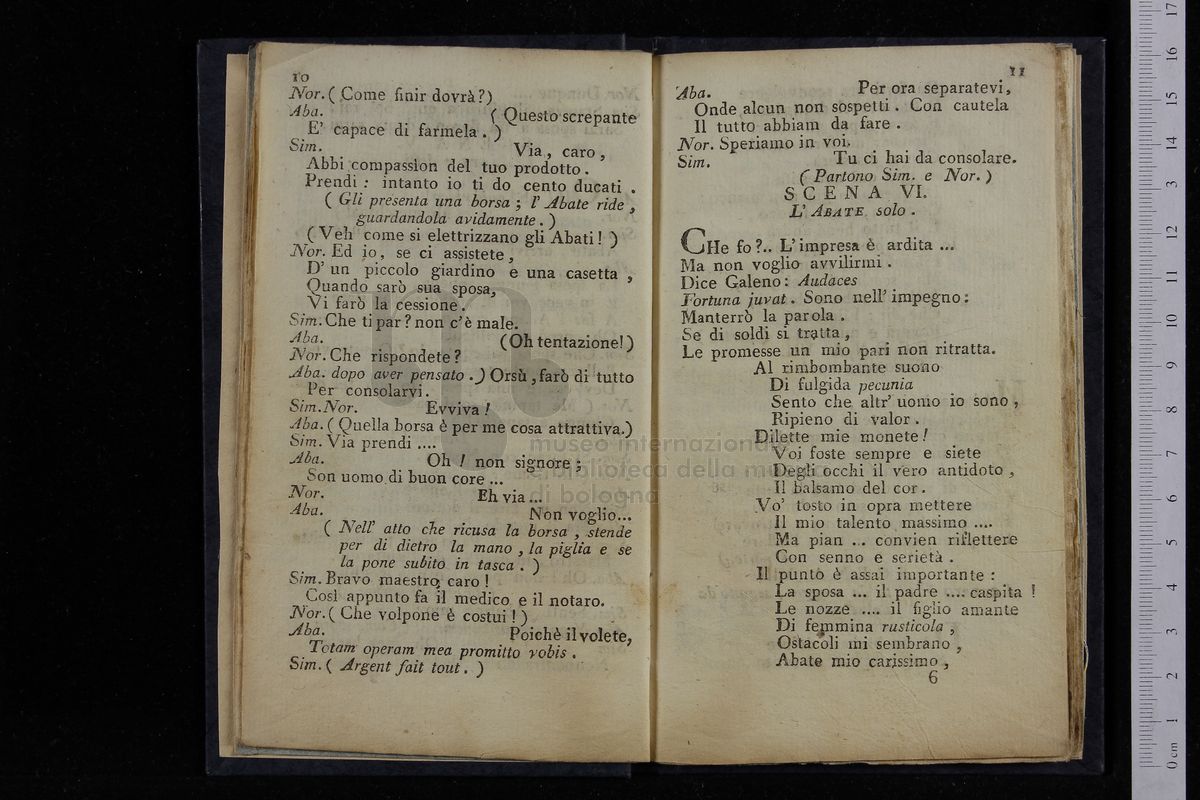 10
Nor. ( Come finir dovrà ? )
Aba. ( Questo screpante
E' capace di farmela . )
Sim. Via , caro ,
Abbi compassion del tuo prodotto .
Prendi : intanto io ti do cento ducati .
( Gli presenta una borsa ; l' Abate ride ,
guardandola avidamente . )
( Veh come si elettrizzano gli Abati ! )
Nor. Ed io , se ci assistete ,
D' un piccolo giardino e una casetta ,
Quando sarò sua sposa,
Vi farò la cessione .
Sim. Che ti par ? non c'è male.
Aba. ( Oh tentazione! )
Nor. Che rispondete ?
Aba. dopo aver pensato . ) Orsù , farò di tutto
Per consolarvi .
Sim. Nor. Evviva !
Aba. ( Quella borsa è per me cosa attrattiva.)
Sim. Via prendi ....
Aba. Oh ! non signore ;
Son uomo di buon core ...
Nor. Eh via ...
Aba. Non voglio...
( Nell' atto che ricusa la borsa , stende
per di dietro la mano , la piglia e se
la pone subito in tasca . )
Sim. Bravo maestro caro !
Così appunto fa il medico e il notaro.
Nor. ( Che volpone è costui ! )
Aba. Poichè il volete,
Totam operam mea promitto vobis .
Sim. ( Argent fait tout . )
11
Aba. Per ora separatevi,
Onde alcun non sospetti . Con cautela
Il tutto abbiam da fare .
Nor. Speriamo in voi.
Sim. Tu ci hai da consolare.
( Partono Sim. e Nor. )
SCENA VI.
L' ABATE solo .
CHe fo ?.. L' impresa è ardita ...
Ma non voglio avvilirmi .
Dice Galeno : Audaces
Fortuna juvat . Sono nell' impegno :
Manterrò la parola .
Se di soldi si tratta ,
Le promesse un mio pari non ritratta.
Al rimbombante suono
Di fulgida pecunia
Sento che altr' uomo io sono ,
Ripieno di valor .
Dilette mie monete !
Voi foste sempre e siete
Degli occhi il vero antidoto ,
Il balsamo del cor .
Vo' tosto in opra mettere
Il mio talento massimo ....
Ma pian ... convien riflettere
Con senno e serietà .
Il punto è assai importante :
La sposa ... il padre .... caspita !
Le nozze .... il figlio amante
Di femmina rusticola ,
Ostacoli mi sembrano ,
Abate mio carissimo ,
6
museo internazionale
e biblioteca della musica
di bologna
0 cm 1 2 3 4 5 6 7 8 9 10 11 12 13 14 15 16 17